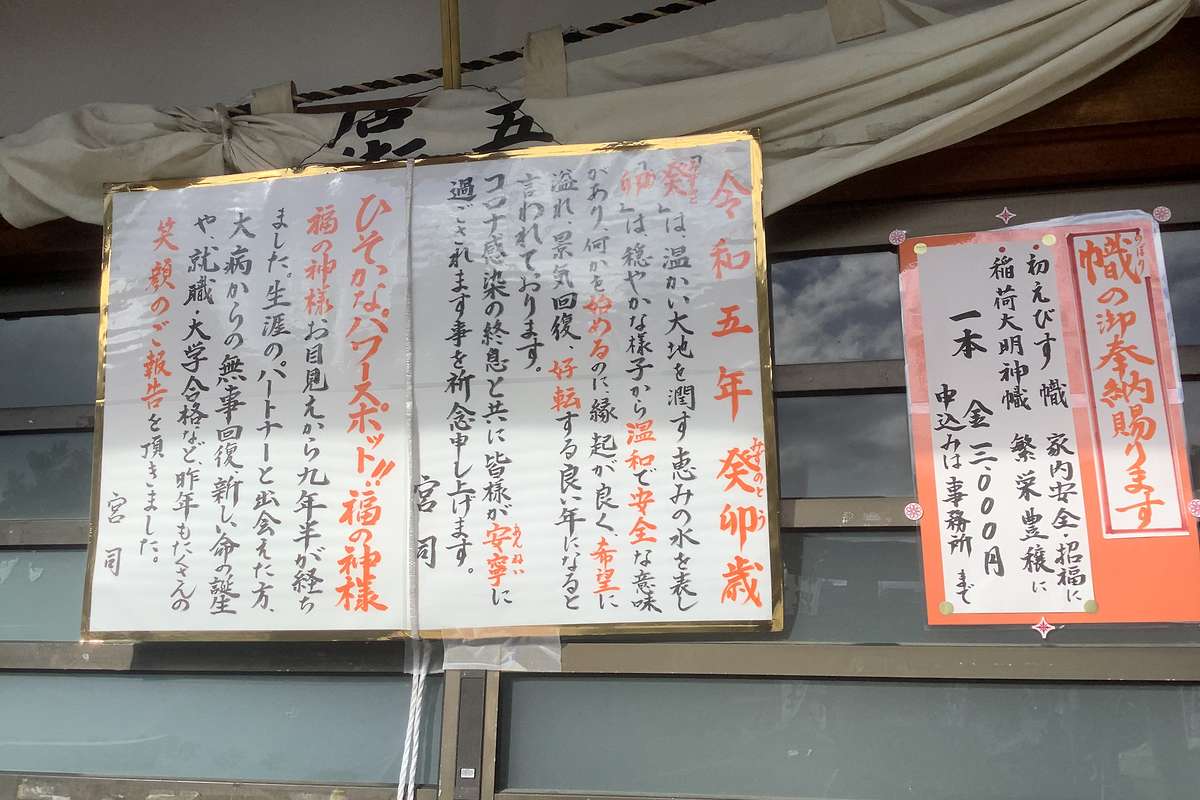 幟の御奉納賜ります
のぼり
・初えびす幟 家内安全・招福に
・稲荷大明神幟 繁栄豊穣に
一本 金三、000円
申込みは事務所まで
令和五年癸卯歳
みずのとう
「癸」は、温かい大地を潤す恵みの水を表し
「卯」は、穏やかな様子から温和で安全な意味
があり、何かを始めるのに縁起が良く、希望に
溢れ、景気回復、好転する良い年になると
言われております。
コロナ感染の終息と共に皆様が安寧に
あんねい
過ごされます事を祈念申し上げます。
宮司
ひそかなパワースポット!!福の神様
福の神様お目見えから九年半が経ち
ました。生涯のパートナーと出会えた方、
大病からの無事回復、新しい命の誕生
や、就職・大学合格など、昨年もたくさんの
笑顔のご報告を頂きました。
宮司
五